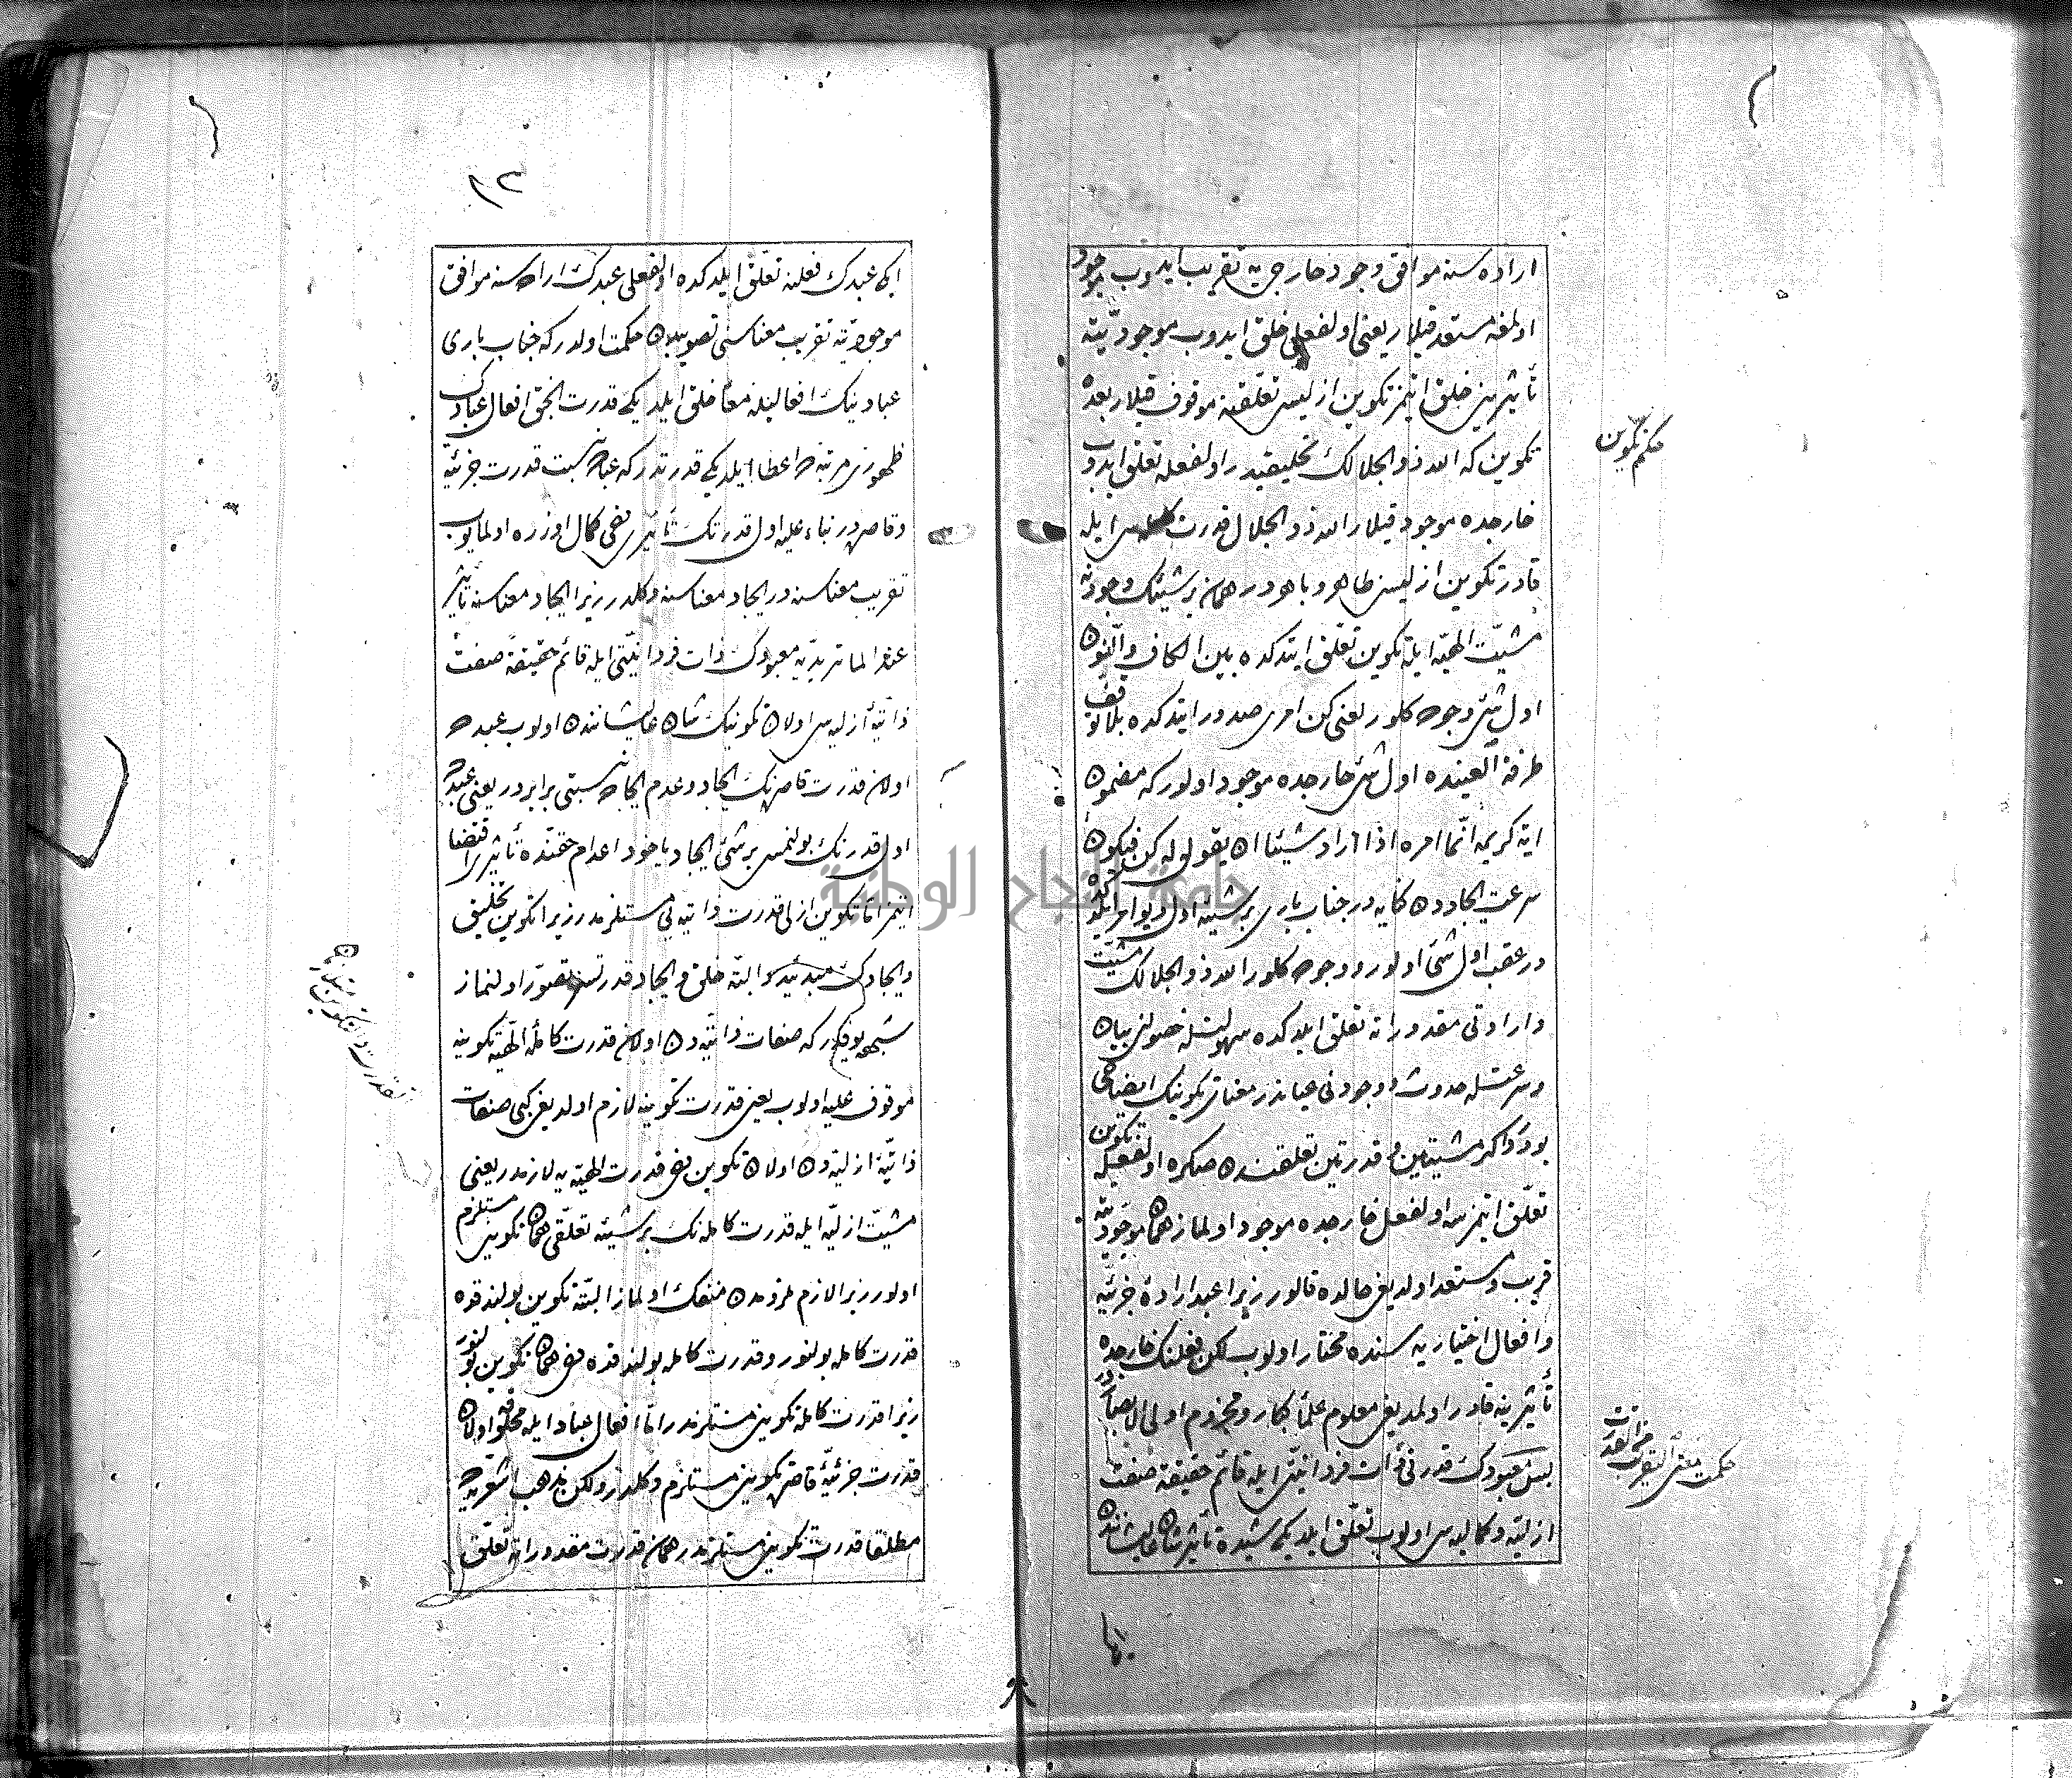 اراده سنه موافق وجود خارجی یه تقریب ایدوب موجود
اولمغه مستعد قیلار یعنی اولفعلی خلق ایدوب موجودیته
تأثیرینی خلق ایتمز تکوین ازلیسی تعلقنه موقوف قیلار بعده
تکوین که الله ذو الجلالك تخلیقیدر اولفعله تعلق ایدوب
خارجده موجود قیلار الله ذو الجلال قدرت ایله
قادر تکوین ازلیسی ظاهر و باهر در همان بر شیئك وجودنه
مشیت الهیه ایله تکوین تعلق ایتدکده بین الکاف والنون
اول شئ وجوده کلور یعنی کن امری صدور ایتدکده بلا توقف
طرفة العینده اول شئ خارجده موجود اولور که مضمون
ایة کریمه انما امره اذا اراد شیئا ان یقول له کن فیکون
سرعت ایجاددن کنایه در جناب باری بر شیئه اول دیو امر ایلدکده
در عقب اول شئ اولور و وجوده کلور الله ذو الجلالك مشیت
و ارادتی مقدوراته تعلق ایلدکده سهولتله حصولنی بیان
و سرعتله حدوث و وجودنی عیاندر معنای تکوینك ایضاحی
بودر اکر مشیتین و قدرتین تعلقندن صکره اولفعله تکوین
تعلق ایتمزسه اولفعل خارجده موجود اولماز همان موجودیته
قریب و مستعد اولدیغی حالده قالور زیرا عبد اراده جزئیه
و افعال اختیاریه سنده مختار اولوب لکن فعلنك خارجده
تأثیرینه قادر اولمدیغی معلوم علماء کبار و مجزوم اولی الابصاردر
پس معبودك قدرتی ذات فردانیتی ایله قائم حقیقة صفت
ازلیه و کمالیه سی اولوب تعلق ایلدیکی شیده تأثیر شان عالیشانندن
حکم تکوین
حکمت معنی التقریب من القدرت
ایکی عبدك فعلنه تعلق ایلدکده اولفعلی عبدك اراده سنه موافق
موجودیته تقریب معناسنی تصویبدن حکمت اولدر که جناب باری
عبادینك افعالیله معا خلق ایلدیکی قدرت انجق افعال عبادك
ظهوری مرتبه ده اعطا ایلدیکی قدرتدر که عباده نسبت قدرت جزئیه
و قاصره در بناء علیه اول قدرتك تأثیر نفی کمال اوزره اولمایوب
تقریب معناسنه در ایجاد معناسنه دکلدر زیرا ایجاد معناسنه تأثیر
عند الماتریدیه معبودك ذات فردانیتی ایله قائم حقیقة صفت
ذاتیه ازلیه سی اولان تکوینك شان عالیشانندن اولوب عبدده
اولان قدرت قاصره نك ایجاد و عدم ایجاده نسبتی برابردر یعنی عبدده
اول قدرتك بولنمسی بر شئ ایجاد یاخود اعدام حقنده تأثیر اقتضا
ایتمز اما تکوین ازلی قدرت ذاتیه یی مستلزمدر زیرا تکوین تخلیق
و ایجادك مبدئیدر البته خلق و ایجاد قدرتسز تصور اولنماز
شبهه یوقدر که صفات ذاتیه دن اولان قدرت کامله الهیه تکوینه
موقوف علیه اولوب یعنی قدرت تکوینه لازم اولدیغی کبی صفات
ذاتیه ازلیه دن اولان تکوین دخی قدرت الهیه یه لازمدر یعنی
مشیت ازلیه ایله قدرت کامله نك بر شیئه تعلقی همان تکوینی مستلزم
اولور زیرا لازم ملزومدن منفك اولماز البته تکوین بولندقده
قدرت کامله بولنور و قدرت کامله بولندقده دخی همان تکوین بولنور
زیرا قدرت کامله تکوینی مستلزمدر اما افعال عباد ایله مخلوقه اولان
قدرت جزئیه قاصره تکوینی مستلزم دکلدر ولکن مذهب اشعریه ده
مطلقا قدرت تکوینی مستلزمدر همان قدرت مقدوراته تعلق
جامعة النجاح الوطنية